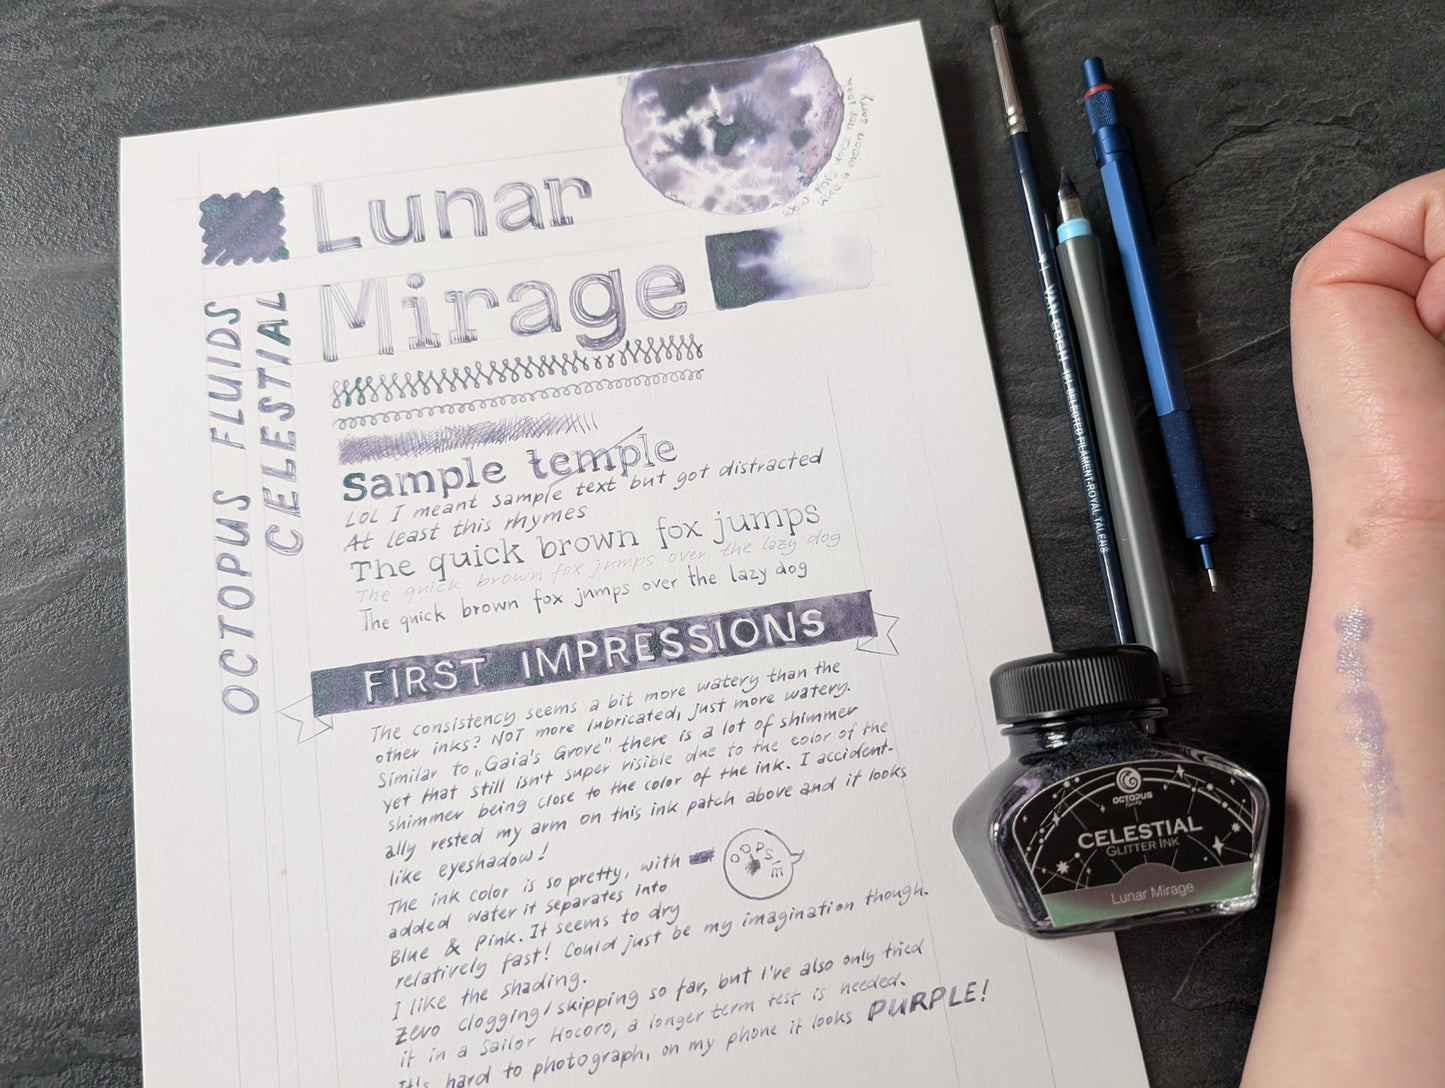 Lunar
Mirage
wow this looks
like a moon sorry
OCTOPUS FLUIDS
CELESTIAL
Sample temple
LOL I meant sample text but got distracted
At least this rhymes
The quick brown fox jumps
The quick brown fox jumps over the lazy dog
The quick brown fox jumps over the lazy dog
FIRST IMPRESSIONS
The consistency seems a bit more watery than the
other inks? NOT more lubricated, just more watery.
Similar to „Gaia's Grove" there is a lot of shimmer
yet that still isn't super visible due to the color of the
shimmer being close to the color of the ink. I accident-
ally rested my arm on this ink patch above and it looks
like eyeshadow!
The ink color is so pretty, with
added water it separates into
Blue & Pink. It seems to dry
relatively fast! Could just be my imagination though.
I like the shading.
Zero clogging/skipping so far, but I've also only tried
it in a Sailor Hocoro, a longer term test is needed.
It's hard to photograph, on my phone it looks PURPLE!
OOPSIE
VAN GOGH 191 SELECTED FILAMENT·ROYAL TALENS
OCTOPUS
fluids
CELESTIAL
GLITTER INK
Lunar Mirage